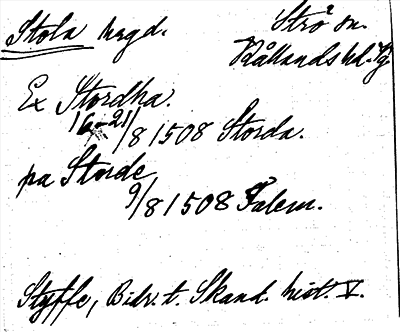 Stola hrgd. Strö sn.
Kållands hd. Vg
Ex Stordha.
16-21/8 1508 Storda.
pa Storde
9/8 1508 Falem.
Styffe, Bidr. t. Skand. hist. V.